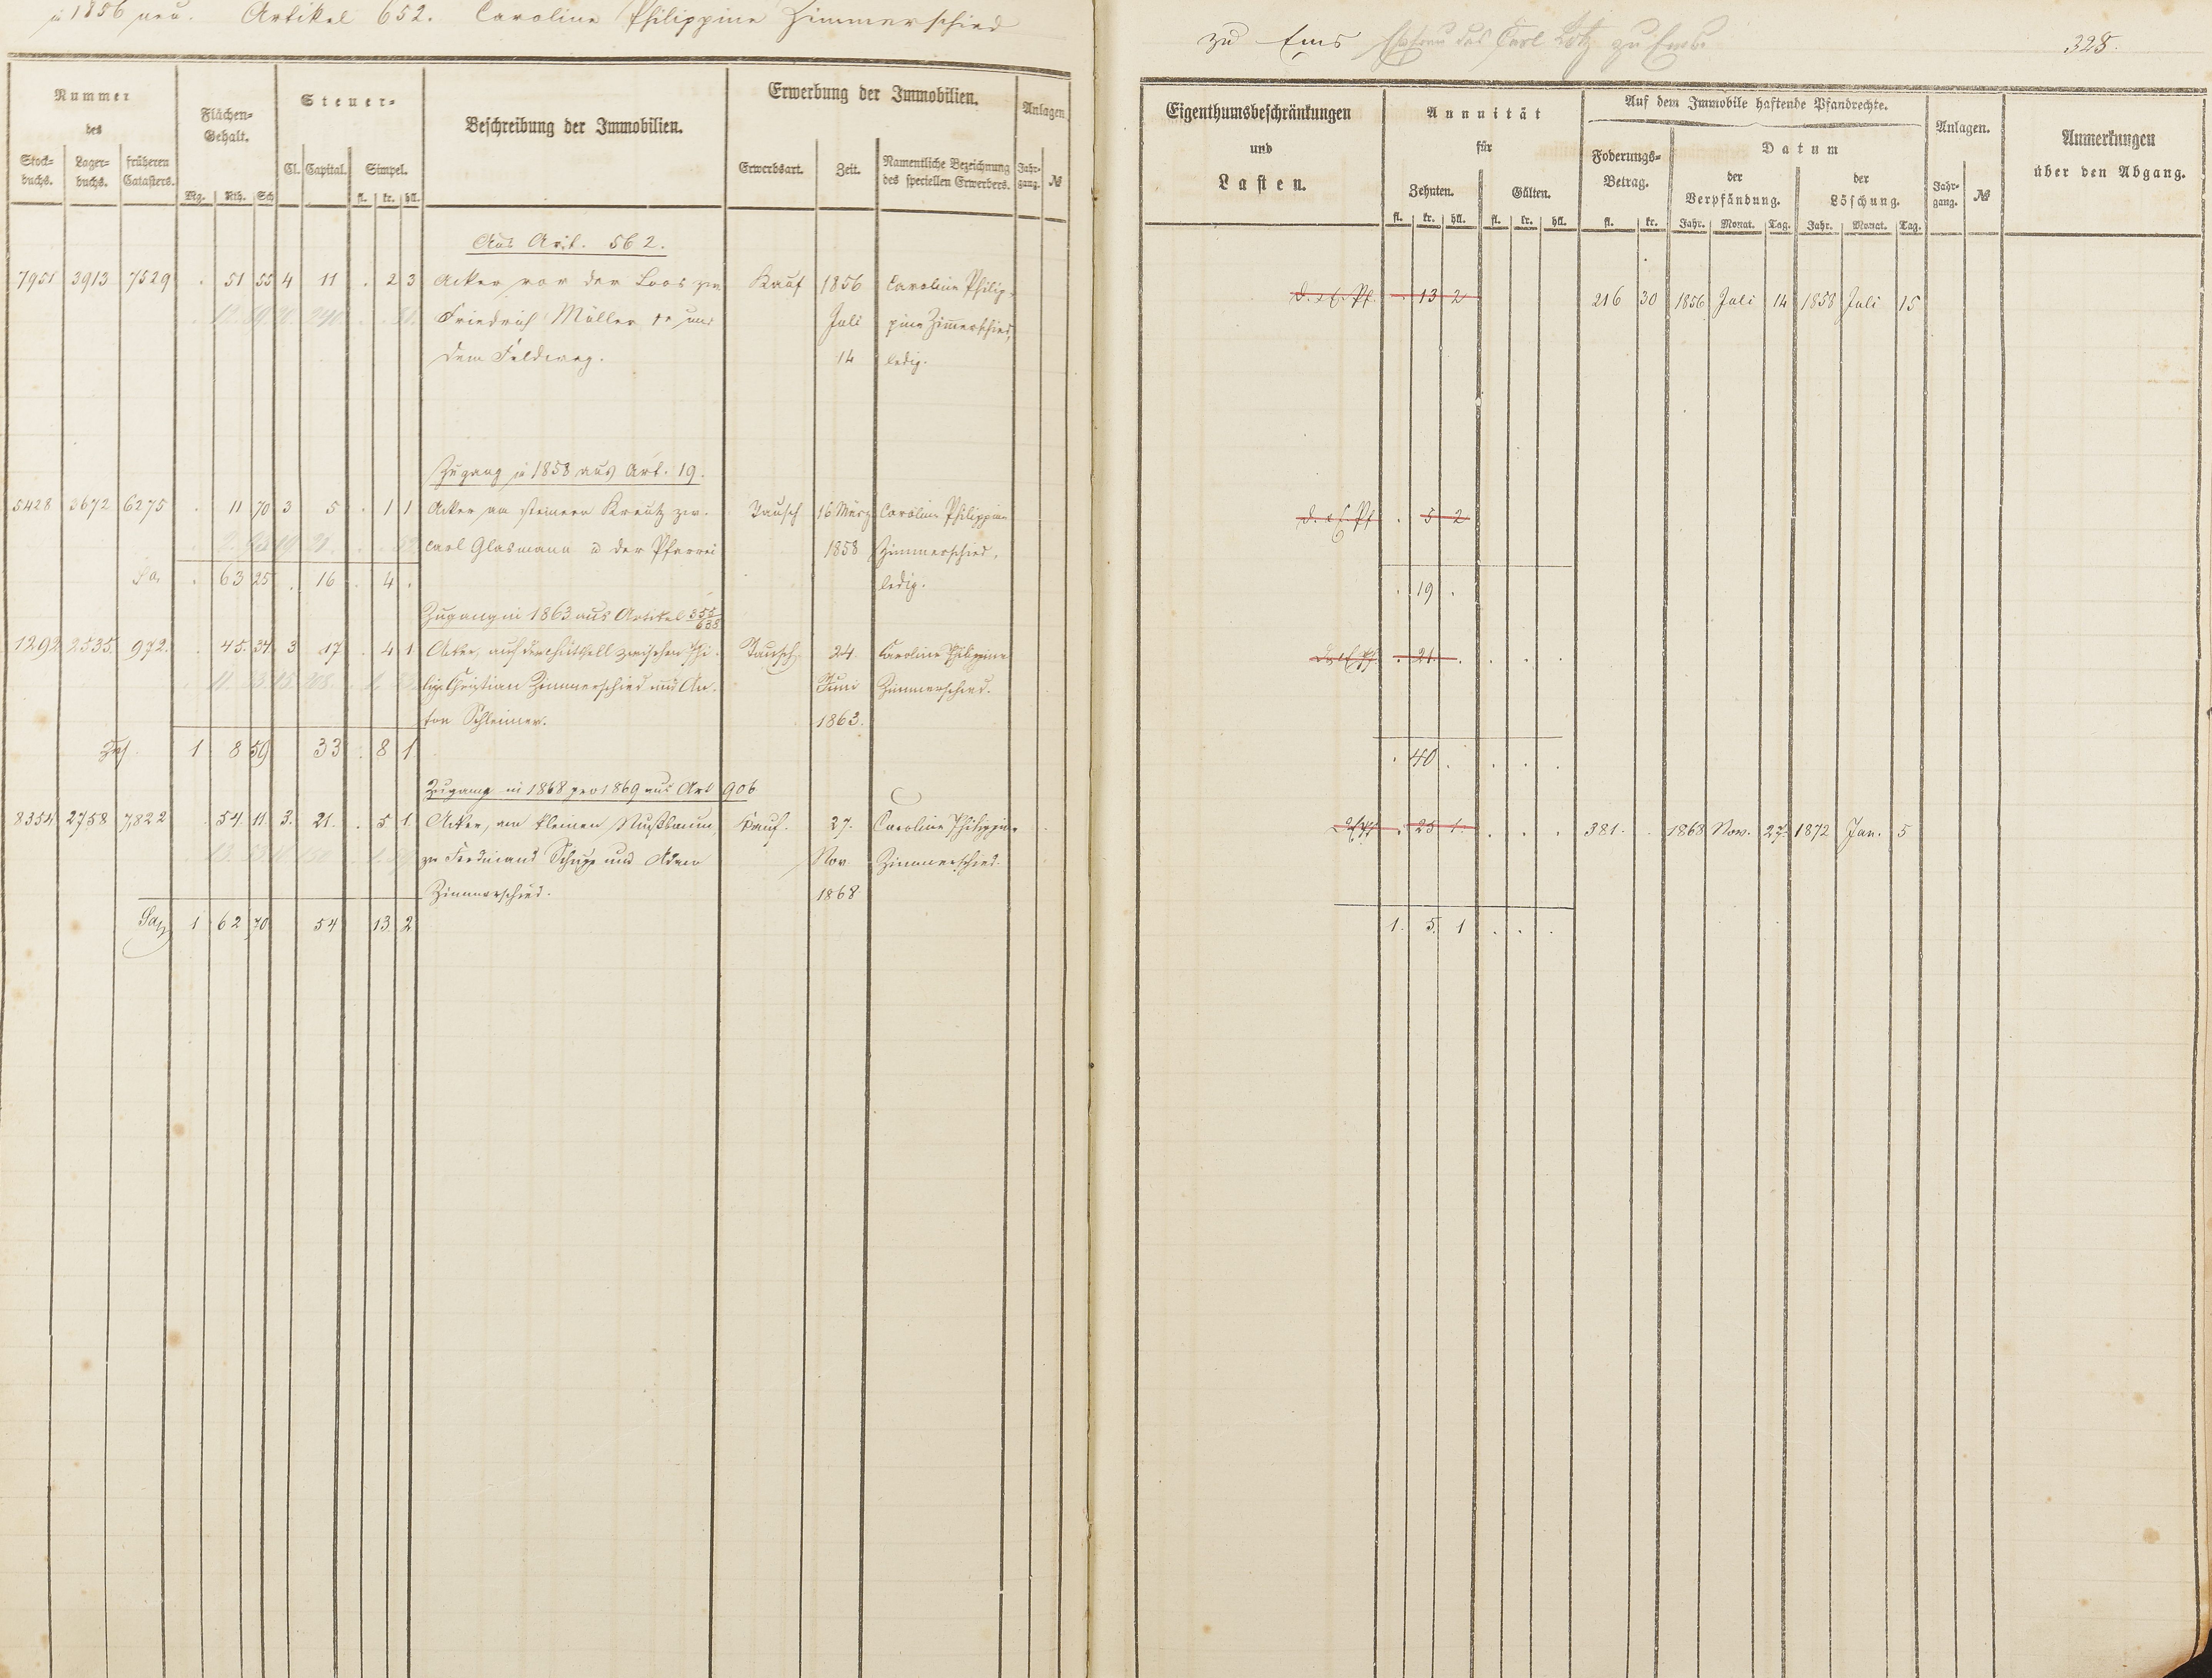 in 1856 neu. Artikel 652. Caroline Philippine Zimmerschied
Nummer
des
Stock-
buchs.
Lager-
buchs.
früheren
Catasters.
Flächen-
Gehalt.
Mg. Rth. Sch
Steuer-
Cl. Capital. Simpel.
fl. kr. hll.
Beschreibung der Immobilien.
Erwerbung der Immobilien.
Erwerbsart. Zeit. Namentliche Bezeichnung
des speciellen Erwerbers.
Anlagen
Jahr-
gang. №
Aus Art. 562.
7951 3913 7529 . 51 55 4 11 . 2 3 Acker vor der Loos zw Kauf 1856 Caroline Philip-
Friedrich Müller 1r und Juli pine Zimmerschied,
dem Feldweg. 14 ledig.
Zugang in 1858 aus Art. 19.
5428 3672 6275 . 11 70 3 5 . 1 1 Acker am steinern Kreutz zw. Tausch 16 März Caroline Philippine
Carl Glasmann u der Pfarrei 1858 Zimmerschied,
Sa . 63 25 . 16 . 4 . ledig.
Zugang in 1863 aus Artikel 355/633
1292 2535. 972. . 45. 34. 3 17 . 4 1 Acker, auf der zwischen Phi- Tausch 24. Caroline Philippine
lipp Christian Zimmerschied und An- Juni Zimmerschied.
ton Schleimer. 1863.
1 8 59 33 . 8 1
Zugang in 1868 pro 1869 aus Art 906
8354 2758 7822 . 54. 11. 3. 21. . 5 1 Acker, am kleinen Nußbaum, Kauf. 27. Caroline Philippine
zw Ferdinand Schupp und Adam Nov. Zimmerschied.
Zimmerschied. 1868
Sa 1 62 70 54 13 2
zu Ems Ehefrau des Carl Lotz zu Ems. 328.
Eigenthumsbeschränkungen
und
Lasten.
Annuität
für
Zehnten. Gülten.
fl. kr. hll. fl. kr. hll.
Auf dem Immobile haftende Pfandrechte.
Foderungs-
Betrag.
fl. kr.
Datum
der
Verpfändung.
Jahr. Monat. Tag.
der
Löschung.
Jahr. Monat. Tag.
Anlagen.
Jahr-
gang. №
Anmerkungen
über den Abgang.
13 2 216 30 1856 Juli 14 1858 Juli 15
. 5 2
. 19 .
. 21. . . . .
. 40 . . . .
. 25 1. . . . 381. . 1868 Nov. 27. 1872 Jan. 5
1. 5. 1 . . .